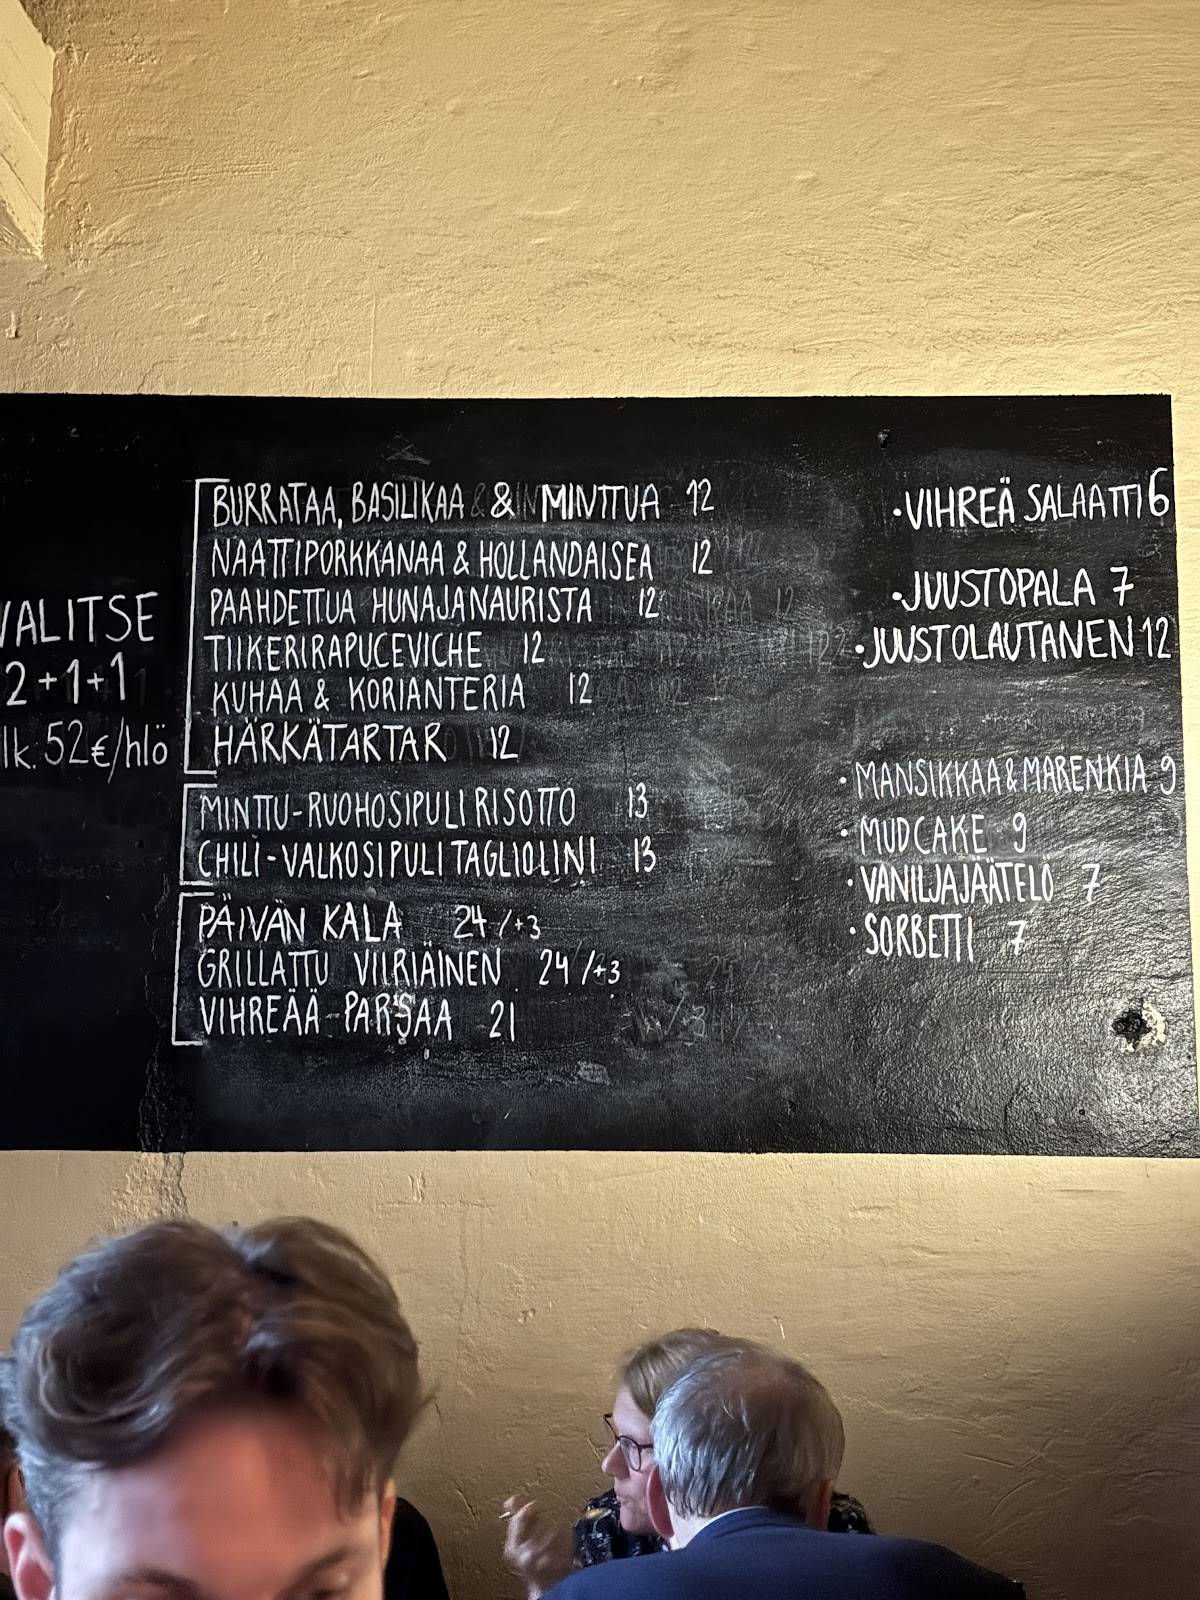 VALITSE
2+1+1
alk. 52€/hlö
BURRATAA, BASILIKAA & MINTTUA 12
NAATTIPORKKANAA & HOLLANDAISEA 12
PAAHDETTUA HUNAJANAURISTA 12
TIIKERIRAPUCEVICHE 12
KUHAA & KORIANTERIA 12
HÄRKÄTARTAR 12
MINTTU-RUOHOSIPULI RISOTTO 13
CHILI-VALKOSIPULI TAGLIOLINI 13
PÄIVÄN KALA 24/+3
GRILLATTU VIIRIÄINEN 24/+3
VIHREÄÄ PARSAA 21
•VIHREÄ SALAATTI 6
•JUUSTOPALA 7
•JUUSTOLAUTANEN 12
•MANSIKKAA & MARENKIA 9
•MUDCAKE 9
•VANILJAJÄÄTELÖ 7
•SORBETTI 7